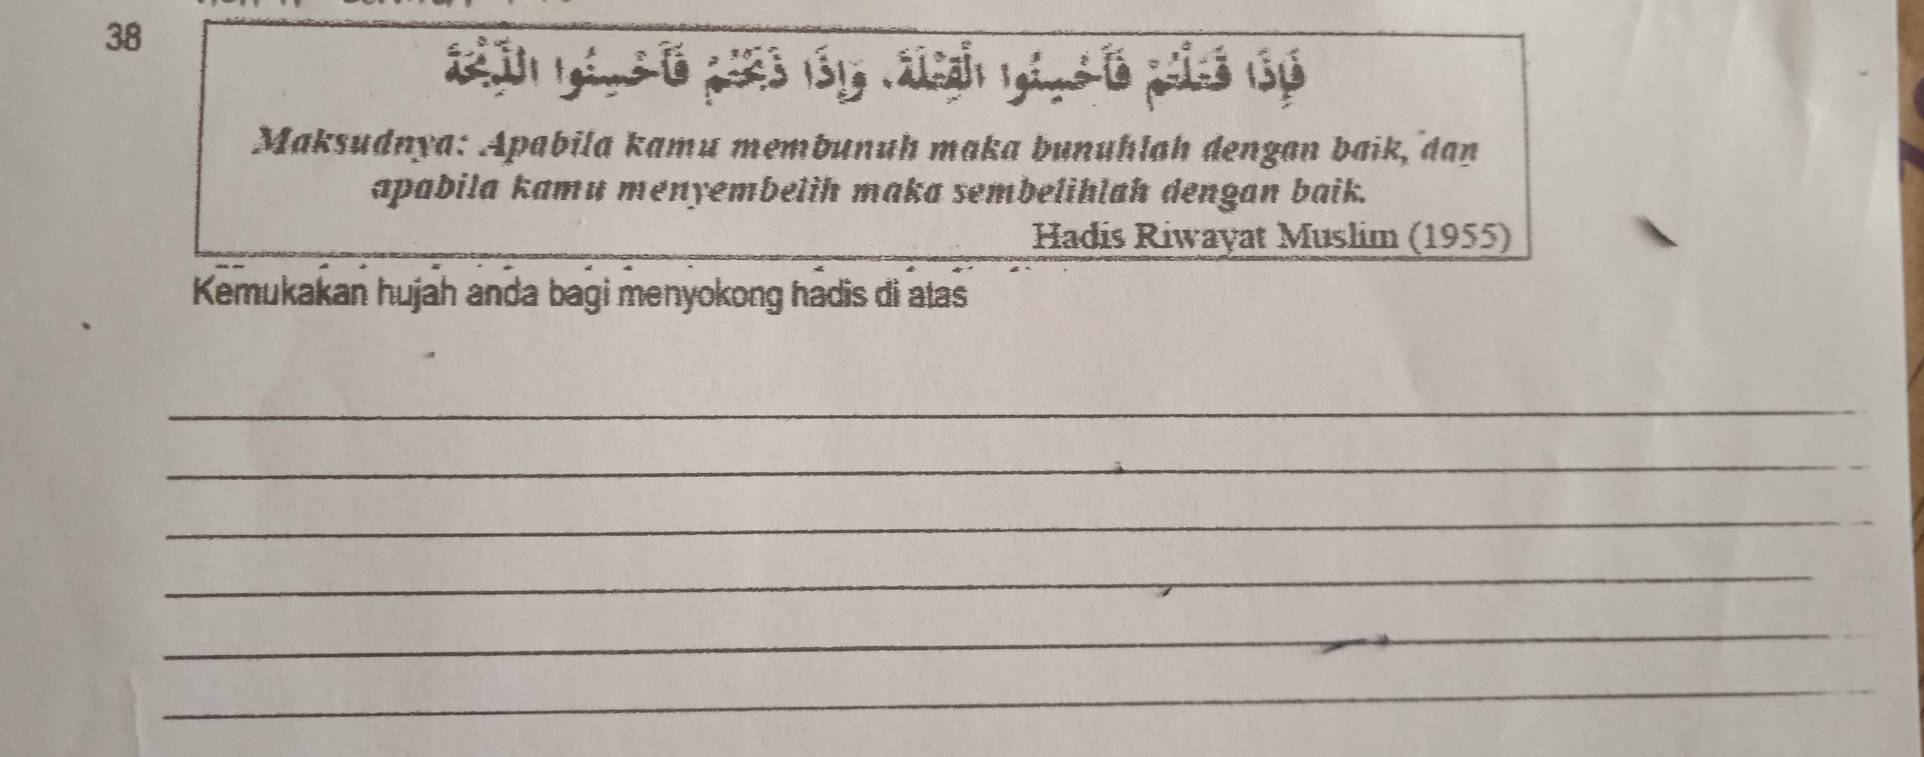 38
فَإِذَا قَتَلْتُمْ فَأَحْسِنُوا الْقِتْلَةَ، وَإِذَا ذَبَحْتُمْ فَأَحْسِنُوا الذِّبْحَةَ
Maksudnya: Apabila kamu membunuh maka bunuhlah dengan baik, dan
apabila kamu menyembelih maka sembelihlah dengan baik.
Hadis Riwayat Muslim (1955)
Kemukakan hujah anda bagi menyokong hadis di atas